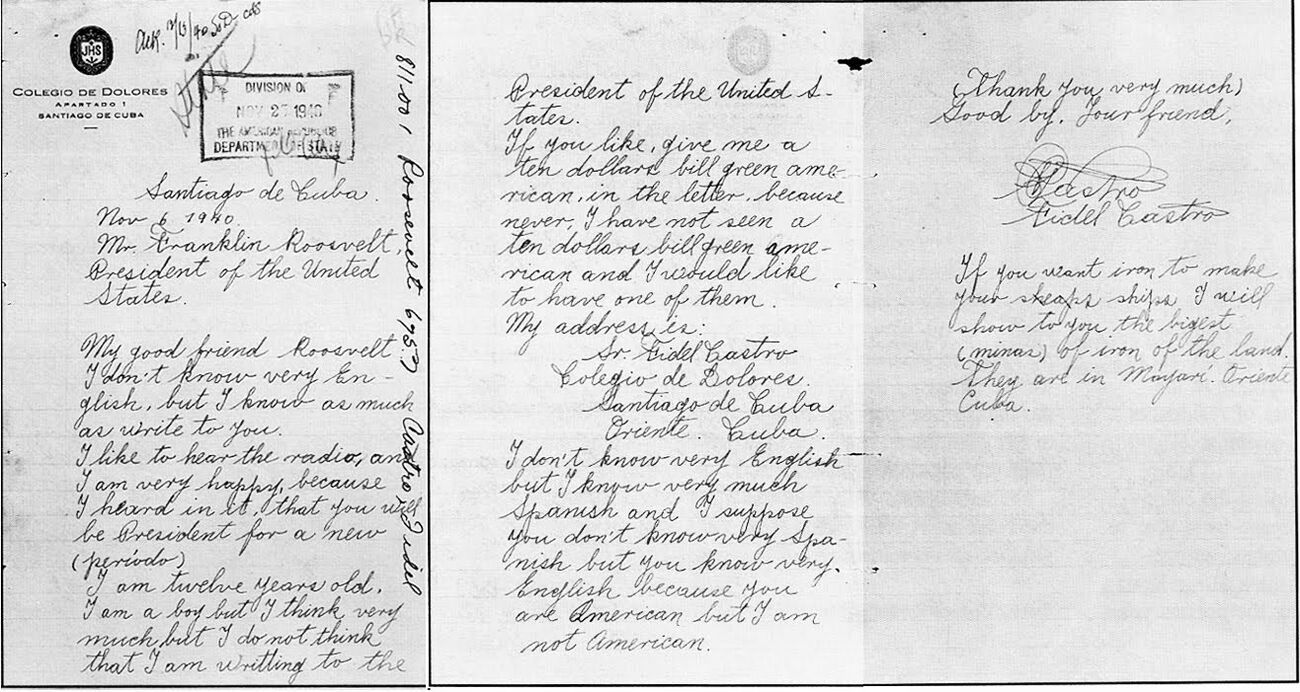 JHS
COLEGIO DE DOLORES
APARTADO 1
SANTIAGO DE CUBA
State
DIVISION OF
NOV 27 1940
THE AMERICAN REPUBLICS
DEPARTMENT OF STATE
811.001 Roosevelt Castro, Fidel
Santiago de Cuba.
Nov 6 1940.
Mr. Franklin Roosvelt,
President of the United
States.
My good friend Roosvelt
I don't know very En-
glish, but I know as much
as write to you.
I like to hear the radio, and
I am very happy, because
I heard in it, that you will
be President for a new
(período)
I am twelve years old.
I am a boy but I think very
much but I do not think
that I am writting to the
President of the United S-
tates.
If you like, give me a
ten dollars bill green ame-
rican, in the letter, because
never, I have not seen a
ten dollars bill green ame-
rican and I would like
to have one of them.
My address is:
Sr. Fidel Castro
Colegio de Dolores.
Santiago de Cuba
Oriente. Cuba.
I don't know very English
but I know very much
Spanish and I suppose
you don't know very Spa-
nish but you know very
English because you
are American but I am
not American.
(Thank you very much)
Good by. Your friend,
Castro
Fidel Castro
If you want iron to make
your sheaps ships I will
show to you the bigest
(minas) of iron of the land.
They are in Mayarí. Oriente
Cuba.